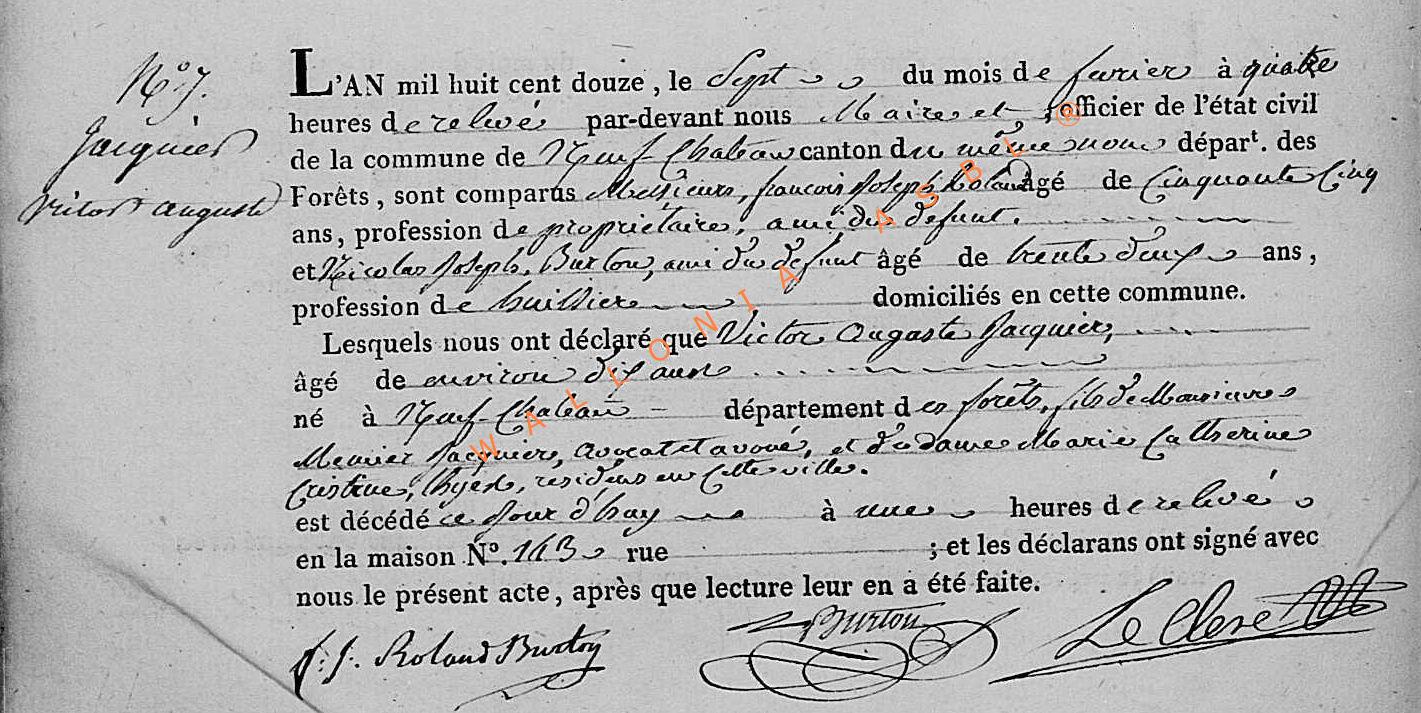 N.o 7.
Jacquier
Victor auguste
L'AN mil huit cent douze, le Sept du mois de fevrier à quatre
heures de relivé par-devant nous Maire et officier de l'état civil
de la commune de Neuf-Chateau canton du même nom départ. des
Forêts, sont comparus Messieurs, francois Joseph Roland âgé de Cinquante Cinq
ans, profession de propriétaire, ami du defunt.
et Nicolas Joseph Burton, ami du defunt âgé de trente deux ans,
profession de huissier domiciliés en cette commune.
Lesquels nous ont déclaré que Victor Auguste Jacquier,
âgé de environ dix ans
né à Neuf-Chateau département des forêts, fils de Monsieur
Jacquier, avocat et avoué, et de dame Marie Catherine
Cristine, residens en Cette ville.
est décédé ce jour d'huy à une heures de relivé
en la maison N.o 143 rue ; et les déclarans ont signé avec
nous le présent acte, après que lecture leur en a été faite.
f. J. Roland Burton
Burton
Le Clere
WALLONIA ASBL @